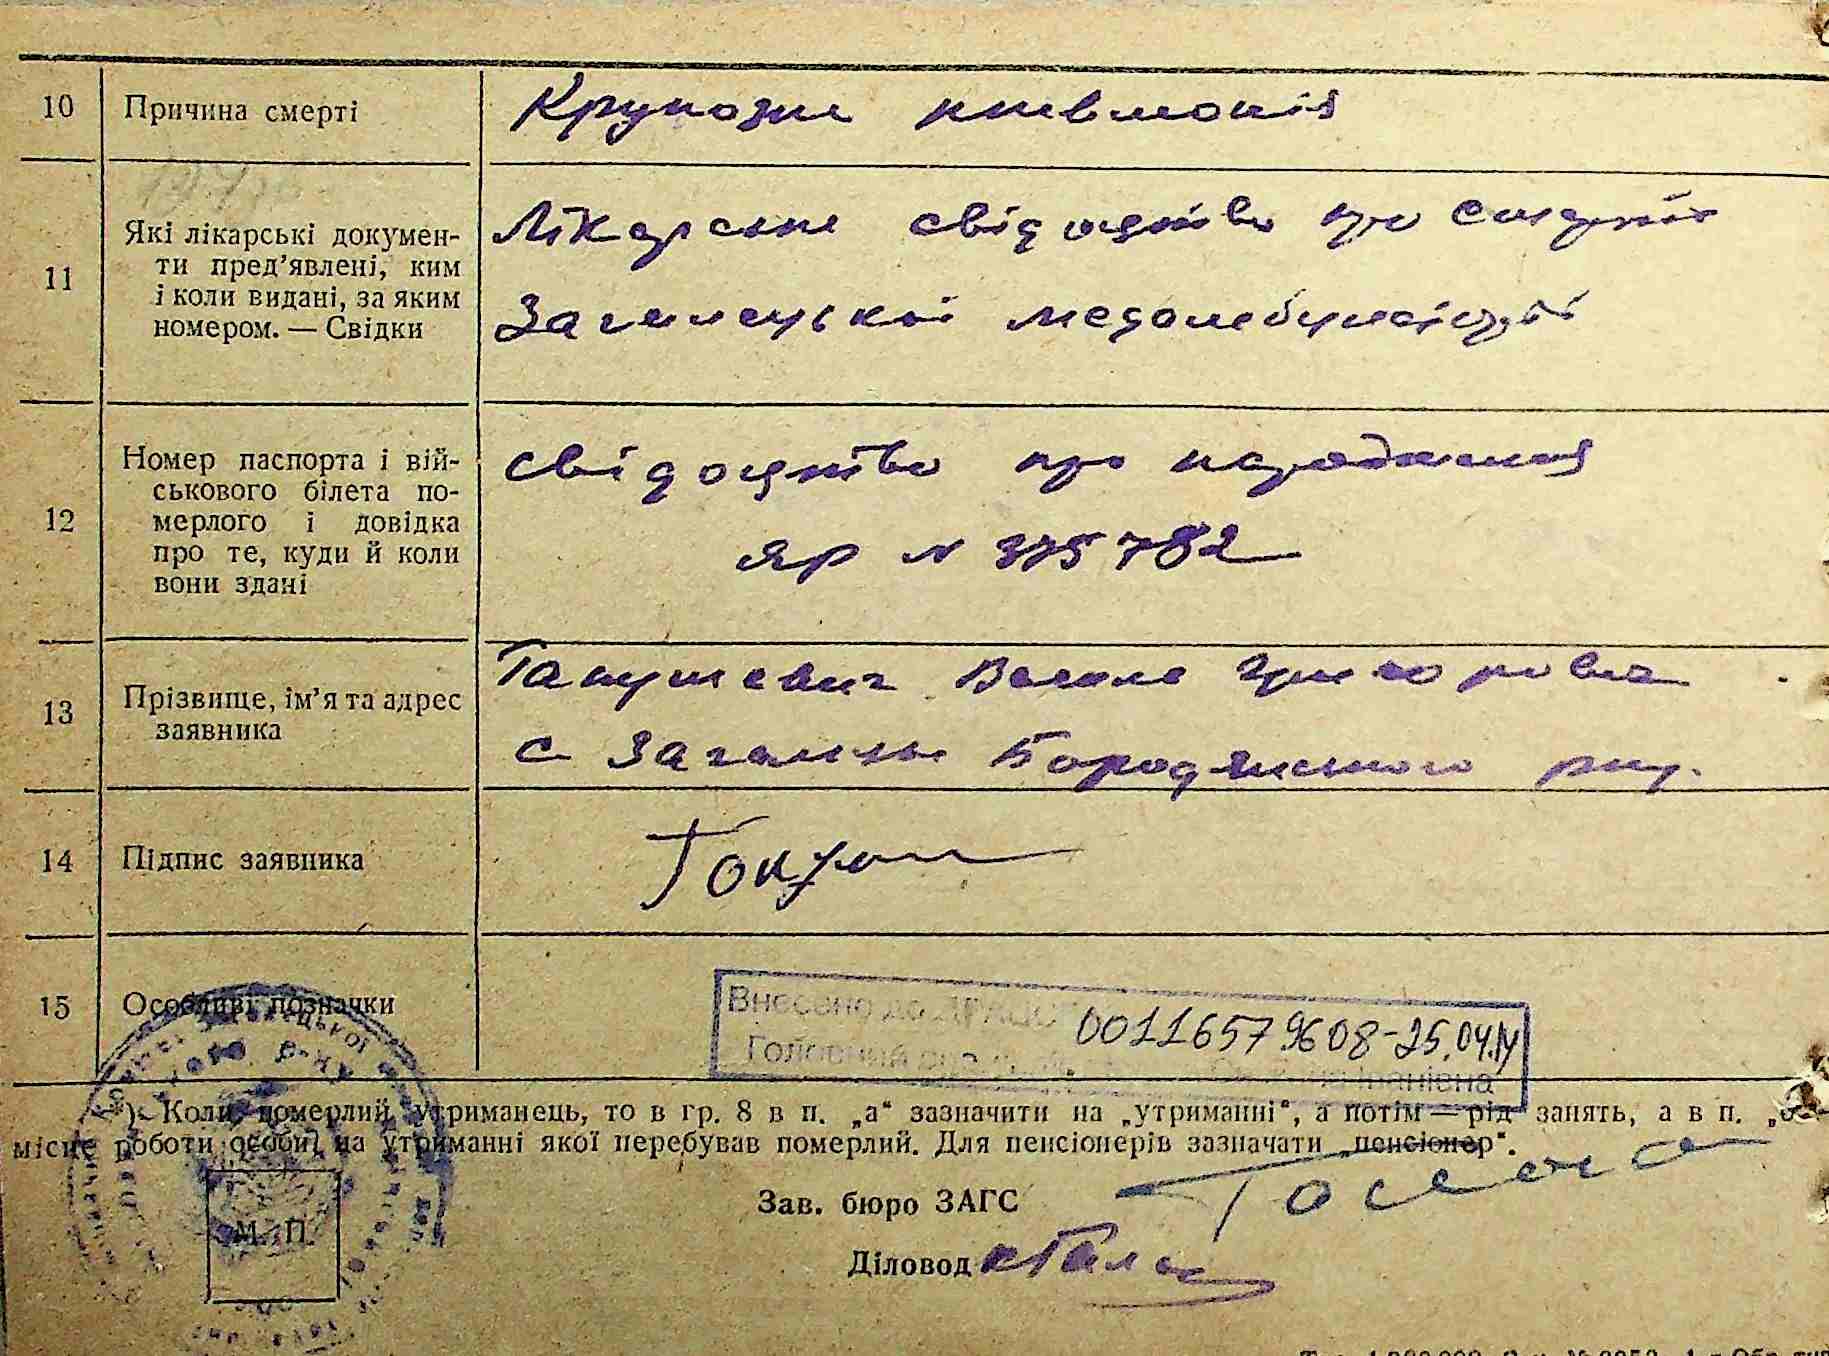 10 Причина смерті Крупозна пневмонія
11 Які лікарські докумен-
ти пред’явлені, ким
і коли видані, за яким
номером. — Свідки
Лікарське свідоцтво про смерть
Загальської
12 Номер паспорта і вій-
ськового білета по-
мерлого і довідка
про те, куди й коли
вони здані
свідоцтво про народження
ЯР N 375782
13 Прізвище, ім’я та адрес
заявника
с Загальці Бородянського
14 Підпис заявника
15 Особливі позначки
Внесено до ДРАЦС 00116579608-25.04.14
Головний
) Коли померлий утриманець, то в гр. 8 в п. „а“ зазначити на „утриманні“, а потім — рід занять, а в п.
місце роботи особи, на утриманні якої перебував померлий. Для пенсіонерів зазначати „пенсіонер“.
Зав. бюро ЗАГС
М. П.
Діловод